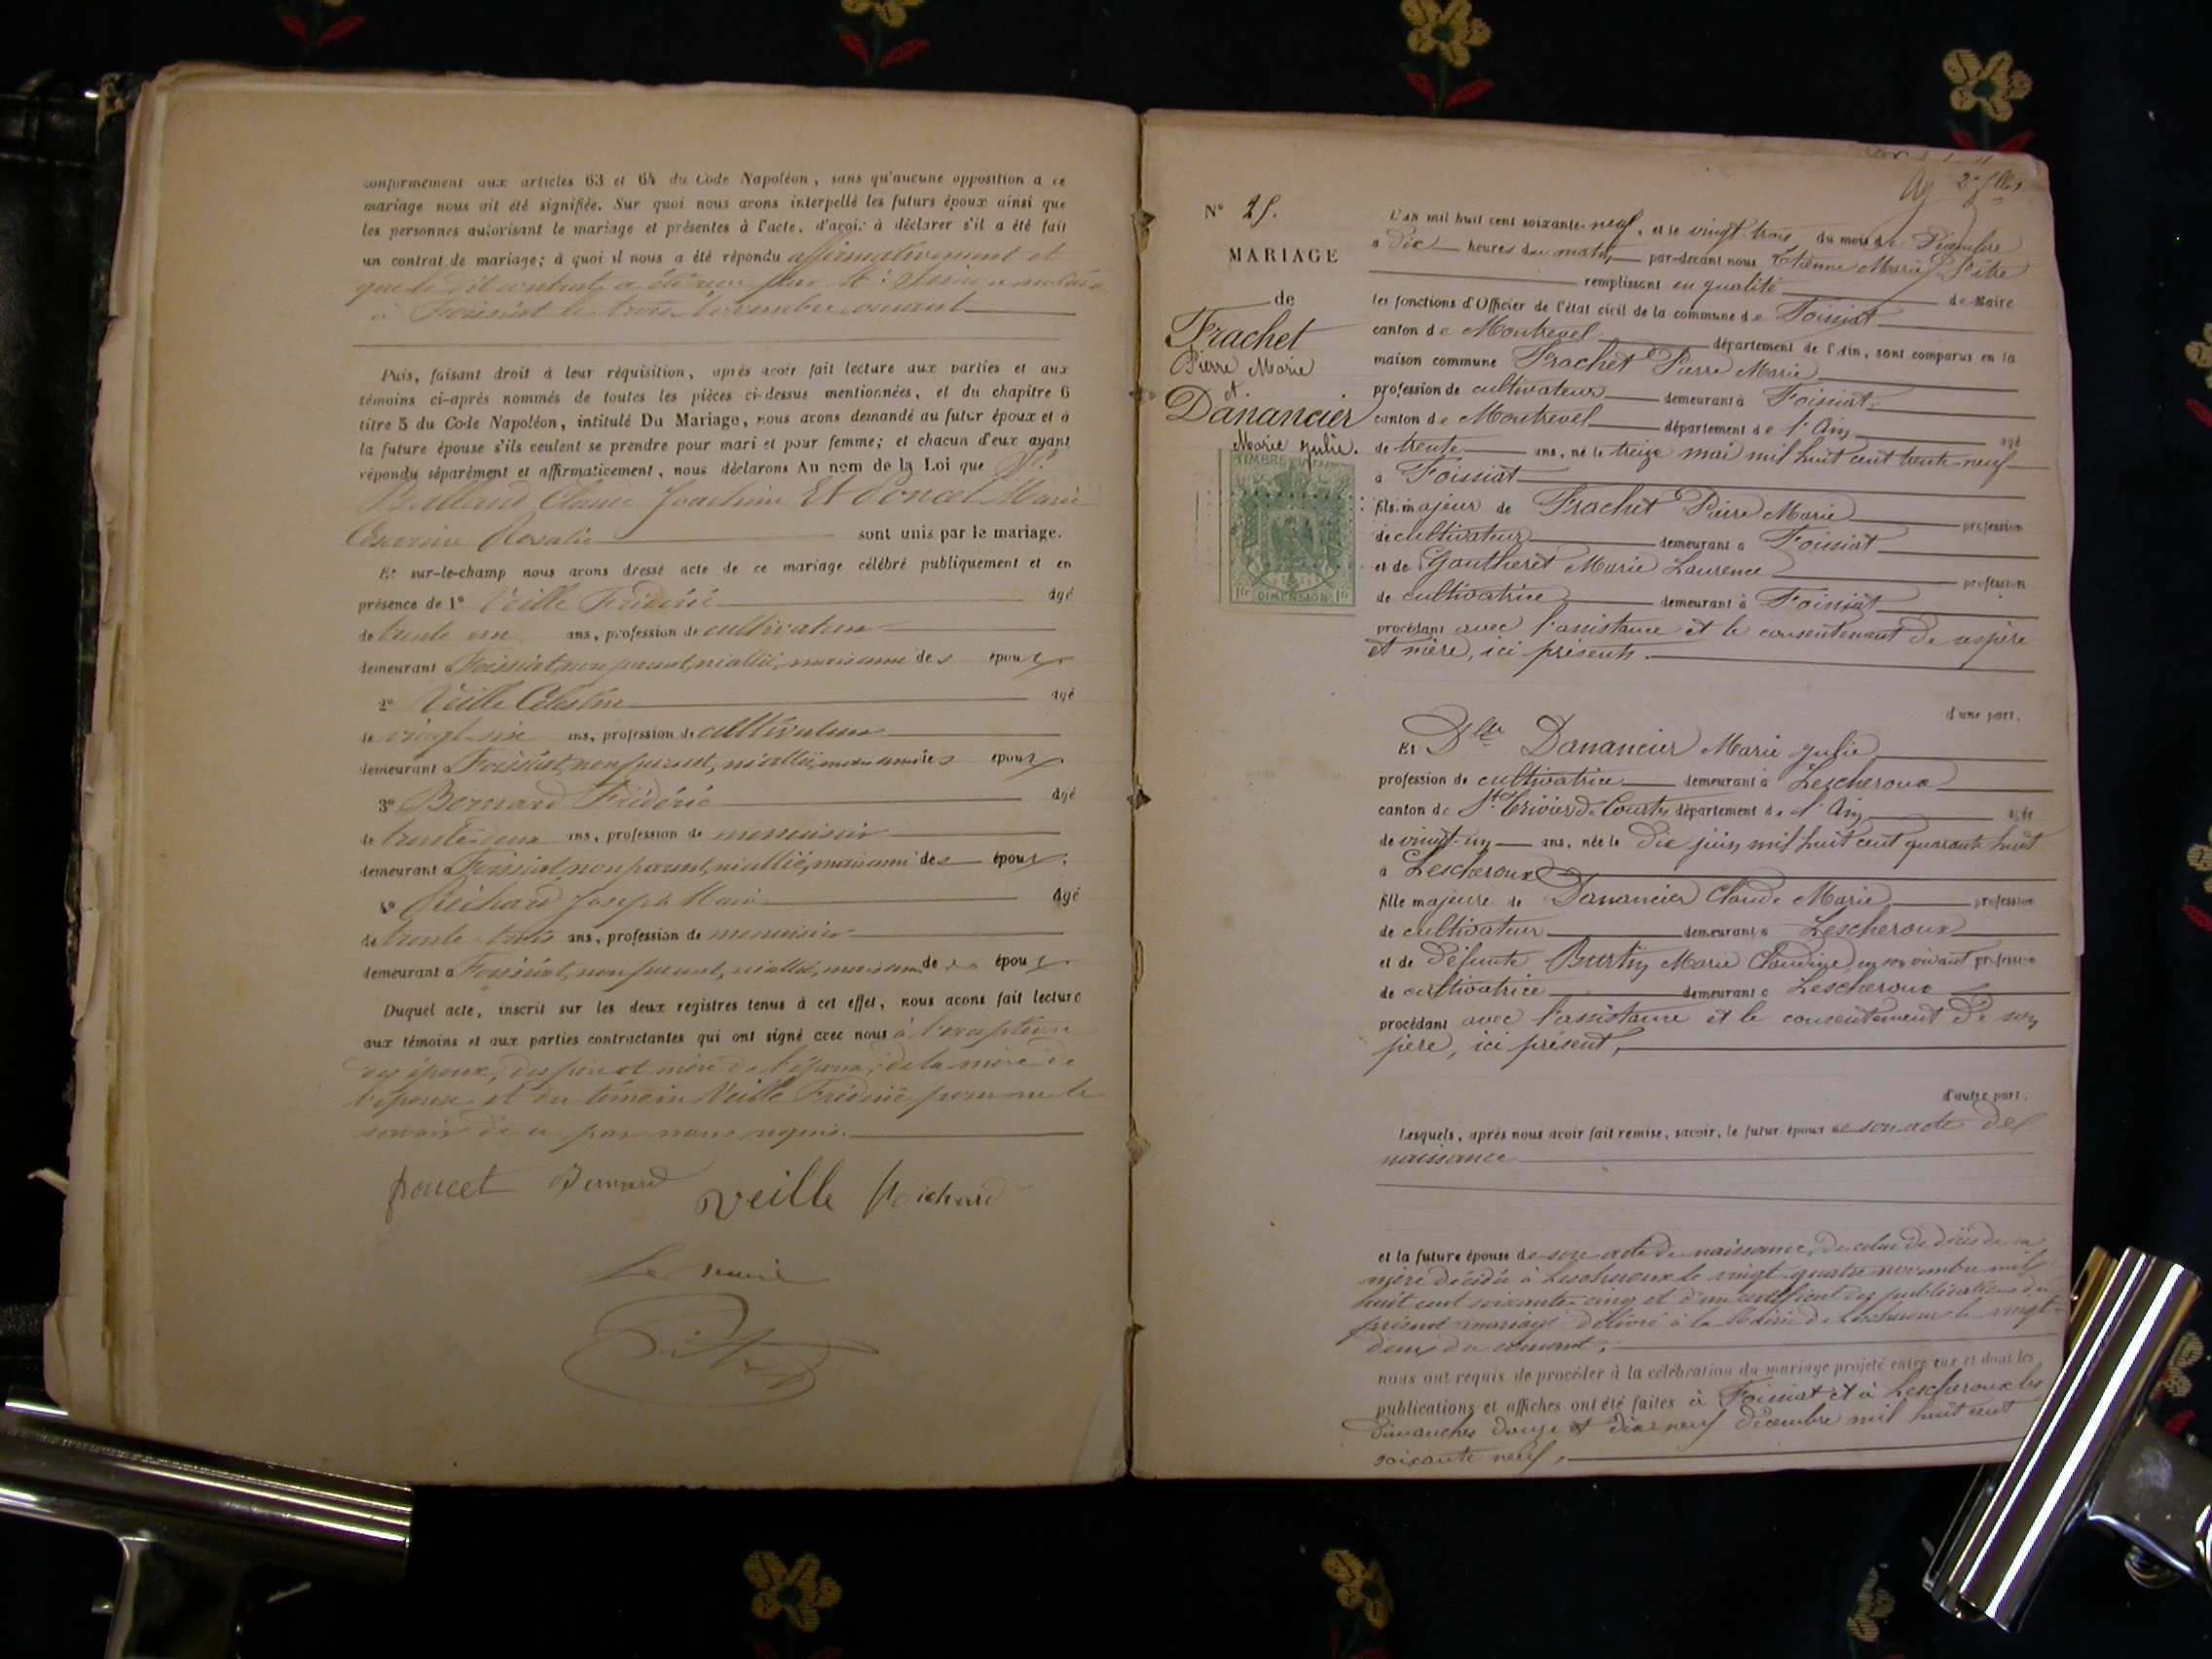 conformément aux articles 63 et 64 du Code Napoléon, sans qu'aucune opposition à ce
mariage nous ait été signifiée. Sur quoi nous avons interpellé les futurs époux ainsi que
les personnes autorisant le mariage et présentes à l'acte, d'avoir à déclarer s'il a été fait
un contrat de mariage; à quoi il nous a été répondu affirmativement et
que le dit contrat a été reçu par Me notaire
à Foissiat le trois décembre courant
Puis, faisant droit à leur réquisition, après avoir fait lecture aux parties et aux
témoins ci-après nommés de toutes les pièces ci-dessus mentionnées, et du chapitre 6
titre 5 du Code Napoléon, intitulé Du Mariage, nous avons demandé au futur époux et à
la future épouse s'ils veulent se prendre pour mari et pour femme; et chacun d'eux ayant
répondu séparément et affirmativement, nous déclarons Au nom de la Loi que
Joachim Et Poncet Marie
Rosalie sont unis par le mariage.
Et sur-le-champ nous avons dressé acte de ce mariage célébré publiquement et en
présence de 1° Veille Frédéric âgé
de trente un ans, profession de cultivateur
demeurant à Foissiat, non parent, ni allié, mais ami des époux.
2° Veille Célestin âgé
de vingt-six ans, profession de cultivateur
demeurant à Foissiat, non parent, ni allié, mais ami des époux.
3° Bernard Frédéric âgé
de trente-deux ans, profession de menuisier
demeurant à Foissiat, non parent, ni allié, mais ami des époux.
4° Guichard Joseph Marie âgé
de trente-trois ans, profession de menuisier
demeurant à Foissiat, non parent, ni allié, mais ami des époux.
Duquel acte, inscrit sur les deux registres tenus à cet effet, nous avons fait lecture
aux témoins et aux parties contractantes qui ont signé avec nous à l'exception
des époux, des père et mère de l'époux, de la mère de
l'épouse et du témoin Veille Frédéric pour ne le
savoir de ce par nous requis.
poncet Bernard Veille Guichard
Le maire
Pitre
Ay 2e flles
N° 25.
MARIAGE
de
Frachet
Pierre Marie
et
Danancier
Marie Julie.
TIMBRE
1 fr DIMENSION 1 fr
L'an mil huit cent soixante-neuf, et le vingt-trois du mois de Décembre
à dix heures du matin, par-devant nous Etienne Marie Pitre
remplissant en qualité de Maire
les fonctions d'Officier de l'état civil de la commune de Foissiat
canton de Montrevel département de l'Ain, sont comparus en la
maison commune Frachet Pierre Marie
profession de cultivateur demeurant à Foissiat
canton de Montrevel département de l'Ain âgé
de trente ans, né le treize mai mil huit cent trente-neuf
à Foissiat
fils majeur de Frachet Pierre Marie profession
de cultivateur demeurant à Foissiat
et de Gautheret Marie Laurence profession
de cultivatrice demeurant à Foissiat
procédant avec l'assistance et le consentement de ses père
et mère, ici présents.
d'une part.
Et Dlle Danancier Marie Julie
profession de cultivatrice demeurant à Lescheroux
canton de St Trivier de Courtes département de l'Ain âgée
de vingt-un ans, née le dix juin mil huit cent quarante huit
à Lescheroux
fille majeure de Danancier Claude Marie profession
de cultivateur demeurant à Lescheroux
et de défunte Burtin Marie Claudine, en son vivant profession
de cultivatrice demeurant à Lescheroux
procédant avec l'assistance et le consentement de son
père, ici présent,
d'autre part.
Lesquels, après nous avoir fait remise, savoir, le futur époux de son acte de
naissance
et la future épouse de son acte de naissance, de celui de décès de sa
mère décédée à Lescheroux le vingt-quatre novembre mil
huit cent soixante-cinq et d'un certificat des publications du
présent mariage délivré à la Mairie de Lescheroux le vingt-
deux du courant,
nous ont requis de procéder à la célébration du mariage projeté entre eux et dont les
publications et affiches ont été faites à Foissiat et à Lescheroux les
dimanches douze et dix-neuf décembre mil huit cent
soixante neuf,